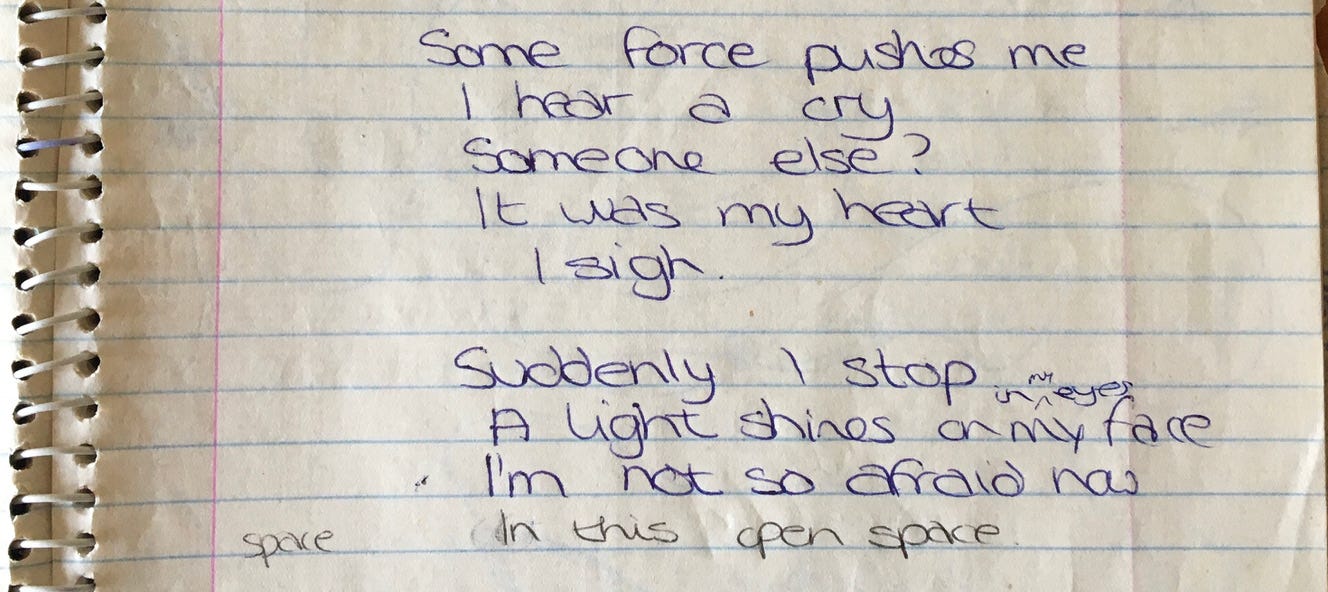 Some force pushes me
I hear a cry
Someone else?
It was my heart
I sigh.
Suddenly I stop
in my eyes
A light shines on my face
I'm not so afraid now
space In this open space.